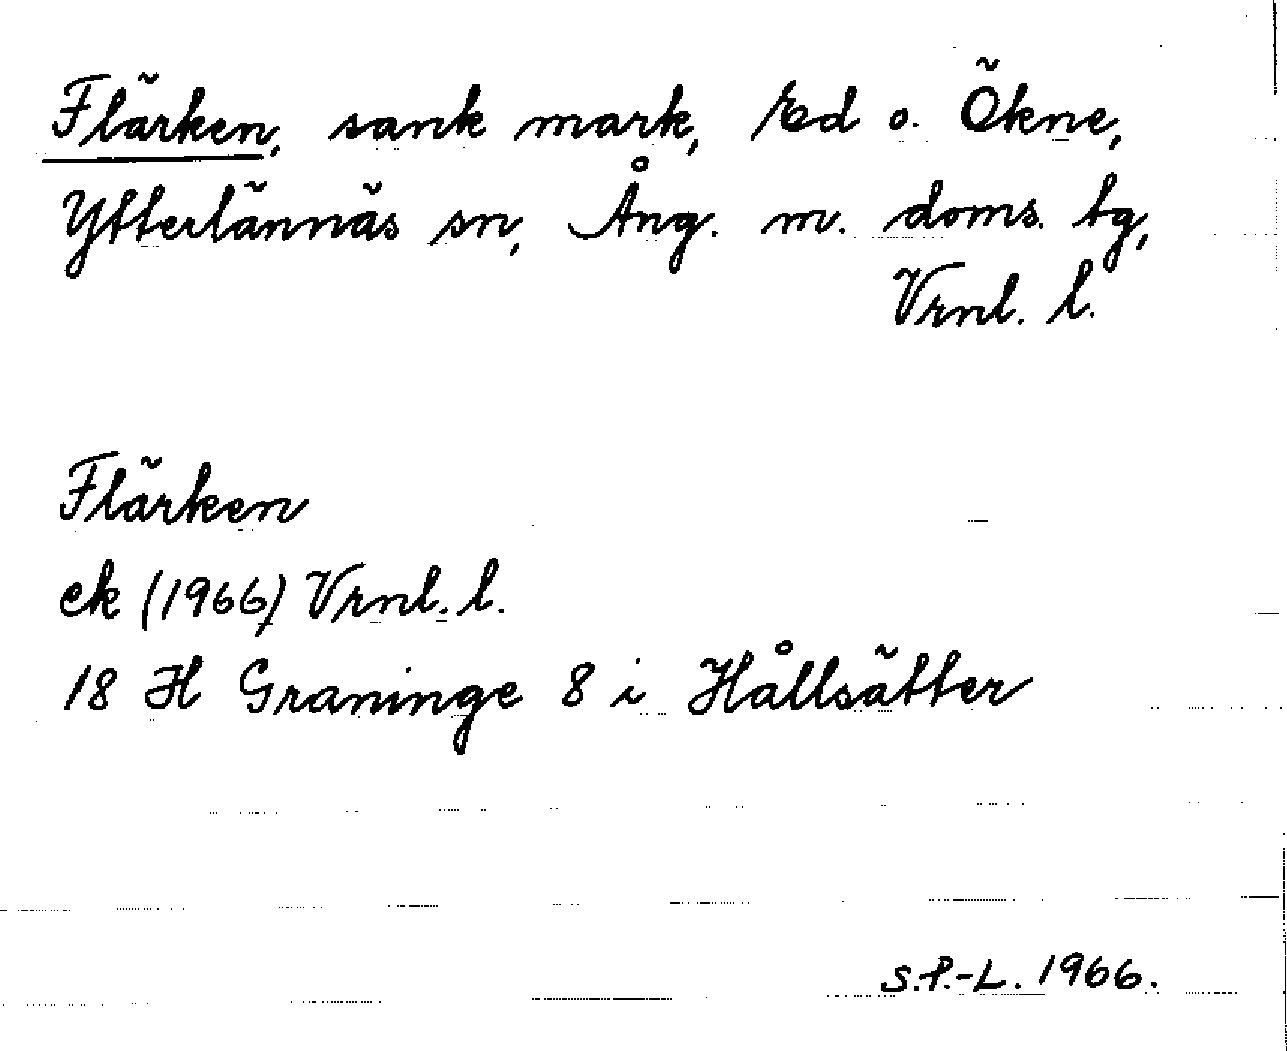 Flärken, sank mark, Ed o. Ökne,
Ytterlännäs sn, Ång. m. doms. tg,
Vrnl. l.
Flärken
ek (1966) Vrnl. l.
18 H Graninge 8 i Hållsätter
S.P.-L. 1966.